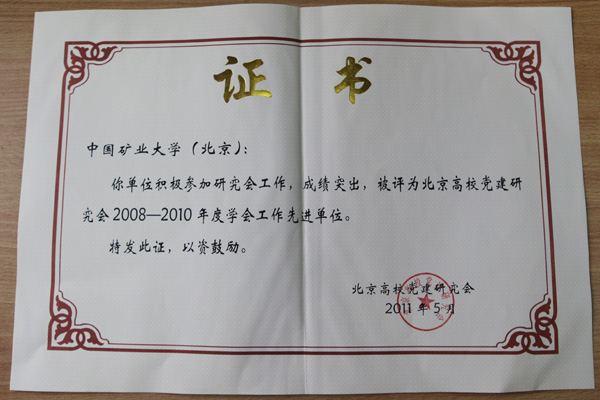 证书
中国矿业大学（北京）：
你单位积极参加研究会工作，成绩突出，被评为北京高校党建研
究会2008—2010年度学会工作先进单位。
特发此证，以资鼓励。
北京高校党建研究会
2011年5月